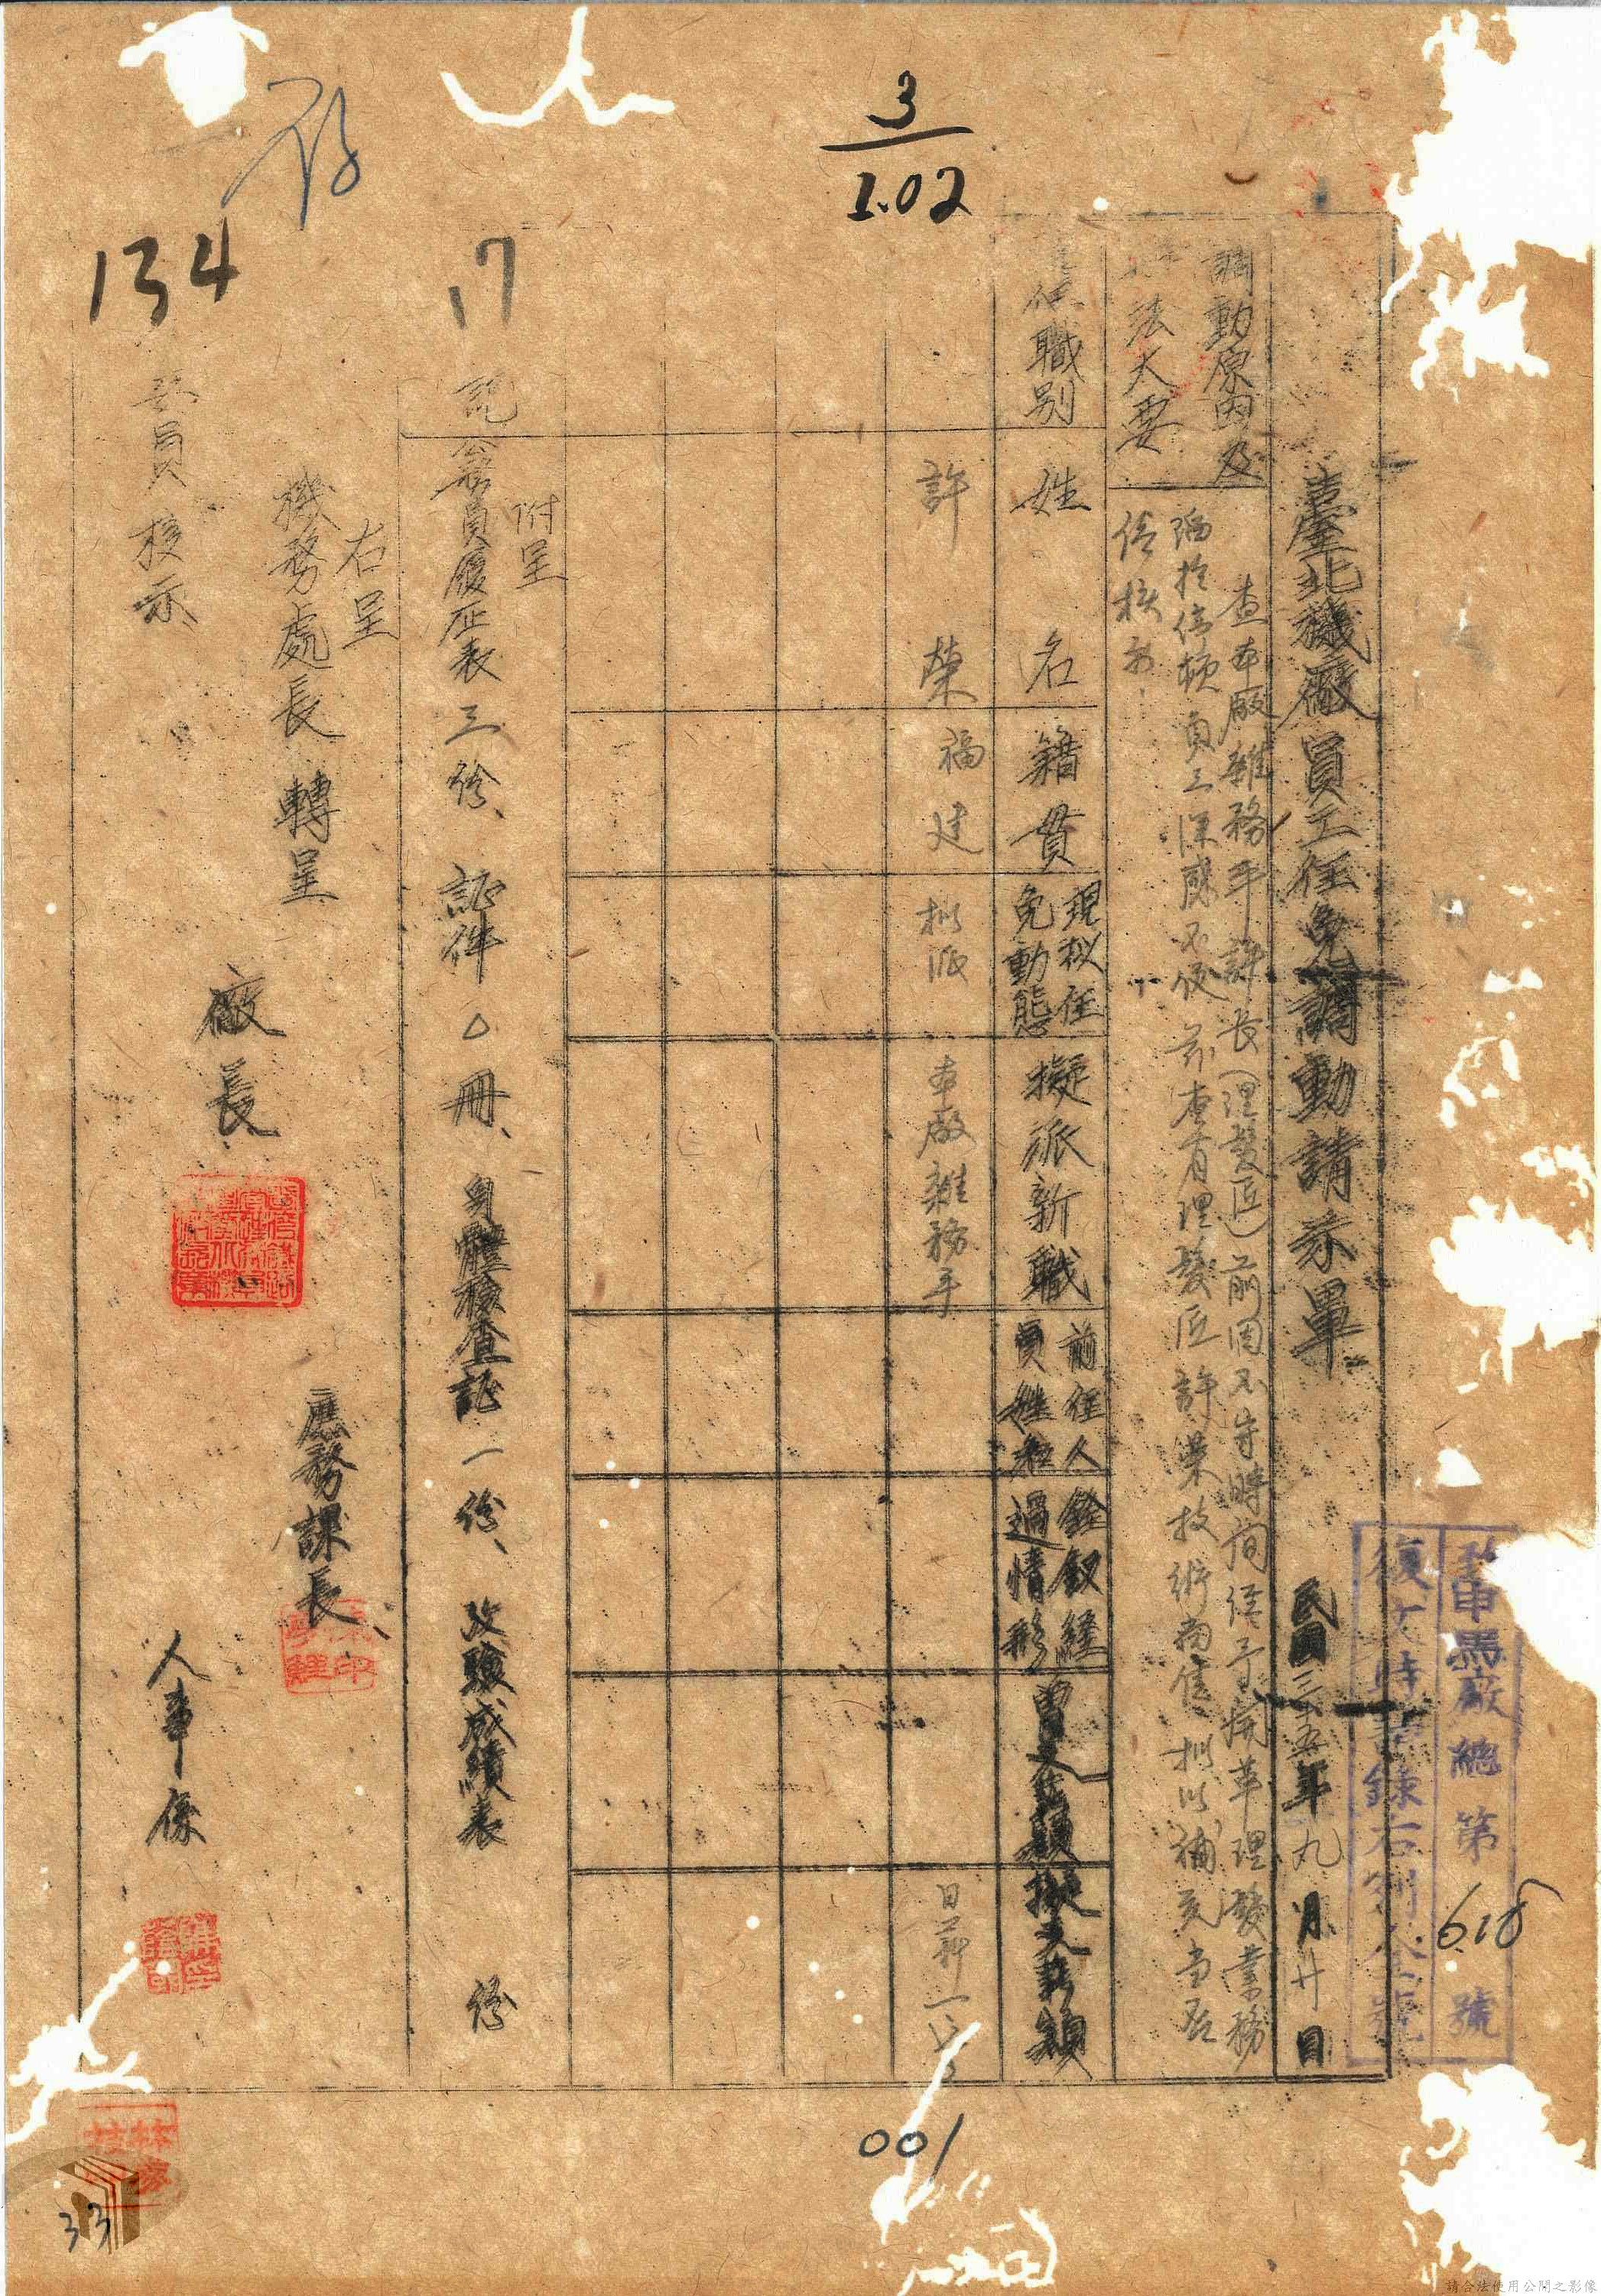 3
1.02
存
134
17
皆申馬廠總第618號
復文時請錄右列全號
臺北機廠員工任免調動請示單 民國三十五年九月廿日
調動原因及
辦法大要
查本廠雜務手許長(理髮匠)前因不守時間經予開革理髮業務
陷於停頓員工深感不便茲查有理髮匠許榮技術尚佳擬以補充當否
佳核示
原任職別 姓名 籍貫 現擬任免動態 擬派新職 前任人員姓名 銓敘經過情形 曾支薪額 擬支薪額
許榮 福建 擬派 本廠雜務手 日薪一
附呈
記 名員履歷表三份、証件0冊、身體檢查証一份、攷驗成績表 份
右呈
機務處長轉呈
委員核示
廠長
庶務課長
人事係
001
33
請合法使用公開之影像